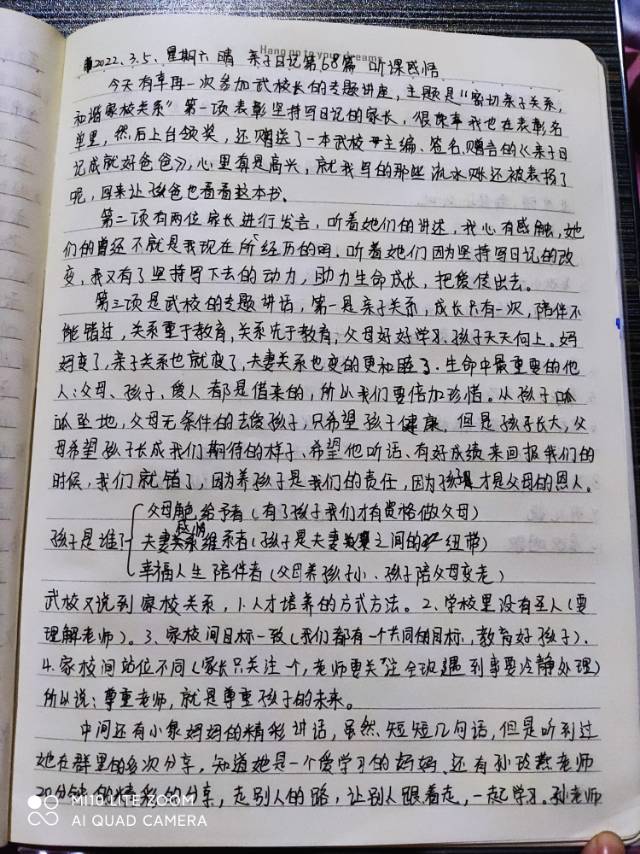 Hang on to your dreams
2022.3.5. 星期六 晴 亲子日记第68篇 听课感悟
今天有幸再一次参加武校长的专题讲座，主题是“密切亲子关系，
和谐家校关系”第一项表彰坚持写日记的家长，很荣幸我也在表彰名
单里，然后上台领奖，还赠送了一本武校主编、签名、赠言的《亲子日
记成就好爸爸》，心里真是高兴，就我写的那些流水账还被表扬了
呢，回来让孩爸也看看这本书。
第二项有两位家长进行发言，听着她们的讲述，我心有感触，她
们的曾经不就是我现在所经历的吗，听着她们因为坚持写日记的改
变，我又有了坚持写下去的动力，助力生命成长，把爱传出去。
第三项是武校的专题讲话，第一是亲子关系，成长只有一次，陪伴不
能错过，关系重于教育，关系先于教育，父母好好学习，孩子天天向上。妈
妈变了，亲子关系也就变了，夫妻关系也变的更和睦了。生命中最重要的他
人：父母、孩子、爱人都是借来的，所以我们要倍加珍惜。从孩子呱
呱坠地，父母无条件的去爱孩子，只希望孩子健康，但是孩子长大，父
母希望孩子长成我们期待的样子、希望他听话、有好成绩来回报我们的
时候，我们就错了，因为养孩子是我们的责任，因为孩子是才是父母的恩人。
父母 给予者（有了孩子我们才有资格做父母）
孩子是谁？ 夫妻感情维系者（孩子是夫妻之间的纽带）
幸福人生 陪伴者（父母养孩子小、孩子陪父母变老）
武校又说到家校关系，1.人才培养的方式方法。2、学校里没有圣人（要
理解老师）。3、家校间目标一致（我们都有一个共同的目标，教育好孩子）.
4.家校间站位不同（家长只关注一个，老师要关注全班遇到事要冷静处理）
所以说：尊重老师，就是尊重孩子的未来。
中间还有小象妈妈的精彩讲话，虽然短短几句话，但是听到过
她在群里的多次分享，知道她是一个爱学习的妈妈、还有孙改燕老师
20分钟的精彩的分享，走别人的路，让别人跟着走，一起学习。孙老师
MI 10 LITE ZOOM
AI QUAD CAMERA